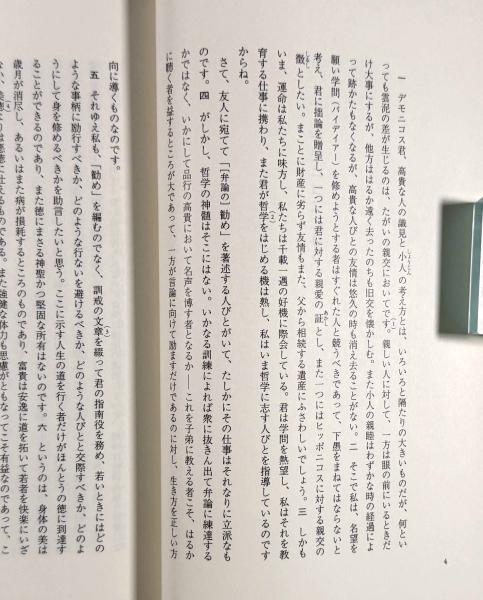 一 デモニコス君、高貴な人の識見と小人の考え方とは、いろいろと隔たりの大きいものだが、何とい
っても雲泥の差が生じるのは、たがいの親交においてです。親しい人に対して、一方は眼の前にいるときだ
け大事にするが、他方ははるか遠く去ったのちも旧交を懐かしむ。また小人の親睦はわずかな時の経過によ
って跡かたもなくなるが、高貴な人びとの友情は悠久の時も消え去ることがない。二 そこで私は、名望を
願い学問(パイデイアー)を修めようとする者はすぐれた人と競うべきであって、下愚をまねてはならないと
考え、君に拙論を贈呈し、一つには君に対する親愛の証とし、また一つにはヒッポニコスに対する親交の
徴としたい。まことに財産に劣らず友情もまた、父から相続する遺産にふさわしいでしょう。三 しかも
いま、運命は私たちに味方し、私たちは千載一遇の好機に際会している。君は学問を熱望し、私はそれを教
育する仕事に携わり、また君が哲学をはじめる機は熟し、私はいま哲学に志す人びとを指導しているのです
からね。
さて、友人に宛てて「[弁論の]勧め」を著述する人びとがいて、たしかにその仕事はそれなりに立派なも
のです。四 がしかし、哲学の神髄はそこにはない。いかなる訓練によれば衆に抜きん出て弁論に練達する
かではなく、いかにして品行の高貴において名声を博す者となるか――これを子弟に教える者こそ、はるか
に聴く者を益するところが大であって、一方が言論に向けて励ますだけであるのに対し、生き方を正しい方
4
向に導くものなのです。
五 それゆえ私も、「勧め」を編むのでなく、訓戒の文章を綴って君の指南役を務め、若いときにはどの
ような事柄に励行すべきか、どのような行ないを避けるべきか、どのような人びとと交際すべきか、どのよ
うにして身を修めるべきかを助言したいと思う。ここに示す人生の道を行く者だけがほんとうの徳に到達す
ることができるのであり、また徳にまさる神聖かつ堅固な所有はないのです。六 というのは、身体の美は
歳月が消尽し、あるいはまた病が損耗するところのものであり、富貴は安逸に道を拓いて若者を快楽にいざ
ない、美徳よりは悪徳に仕えるものである。また強健な体力も思慮がともなってこそ有益なのであって、こ